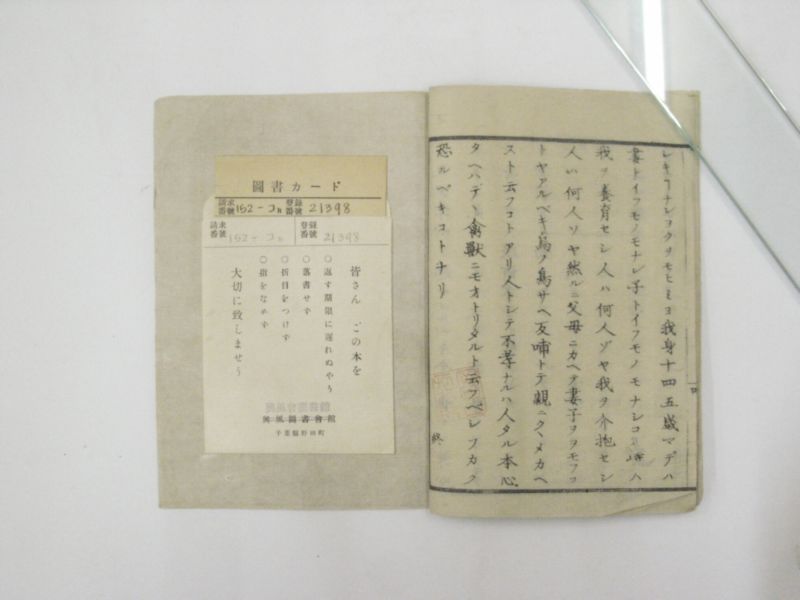 圖書カード
請求番號 152-
登録番號 21398
請求番號 152-
登録番號 21398
皆さん この本を
○返す期限に遲れぬやう
○落書せず
○折目をつけず
○指をなめず
大切に致しませう
興風圖書會館
千葉縣野田町
我身十四五歳マデハ
妻トイフモノモナレ子トイフモノモナレコノ時ハ
我ヲ養育セシ人ハ何人ゾヤ我ヲ介抱セシ
人ハ何人ソヤ然ルニ父母ニカヘテ妻子ヲヲモフコ
トヤアルベキ鳥ノ鳥サヘ反哺トテ親ニクヽメカヘ
スト云フコトアリ人トシテ不孝ナルハ人タル本心
タヘハテヽ禽獣ニモオトリタルト云フベレフカク
恐ルベキコトナリ
終